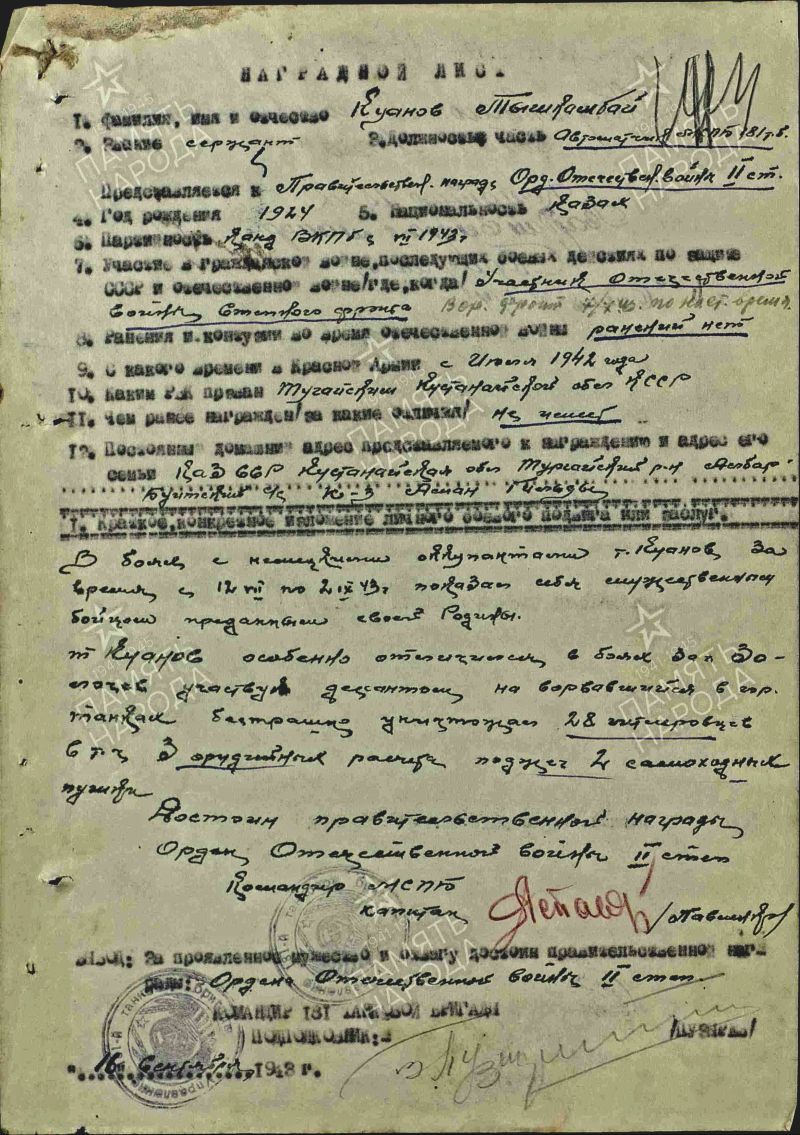 НАГРАДНОЙ ЛИСТ
1. Фамилия, имя и отчество Куанов Тышкамбай
2. Звание сержант 3. Должность, часть Автоматчик МСПБ 181 т.б.
Представляется к Правительствен. награде Орд. Отечествен. войны II ст.
4. Год рождения 1924 5. Национальность казах
6. Партийность канд ВКПб с VII 1943г
7. Участие в Гражданской войне, последующих боевых действиях по защите
СССР и отечественной войне/где, когда/ Участник Отечественной
войны Степного фронта Вор. фронт по наст. время.
8. Ранения и контузии во время отечественной войны ранений нет
9. С какого времени в Красной Армии с Июля 1942 года
10. Каким РВК призван Тургайским Кустанайской обл КССР
11. Чем ранее награжден/за какие отличия/ не имеет
12. Постоянный домашний адрес представляемого к награждению и адрес его
семьи Каз ССР Кустанайская обл Тургайский р-н
К-З
1. Краткое, конкретное изложение личного боевого подвига или заслуг.
В боях с немецкими оккупантами т. Куанов за
время с 12 VII по 2 IX 43г показал себя мужественным
бойцом преданным своей Родины.
т Куанов особенно отличился в боях за г. Зо-
лочев участвуя десантом на ворвавшийся в гор.
танках бестрашно уничтожал 28 гитлеровцев
в т.ч 3 орудийных расчета поджег 2 самоходных
пушки
Достоин правительственной награды
Орден Отечественной войны II степ
Командир МСПБ
капитан
ВЫВОД: За проявленное мужество и отвагу достоин правительственной наг-
рады: Ордена Отечественной войны II степ.
КОМАНДИР 181 ТАНКОВОЙ БРИГАДЫ
ПОДПОЛКОВНИК: /ПУЗЫРЕВ/
"16" Сентября 1943 г.
ПАМЯТЬ НАРОДА